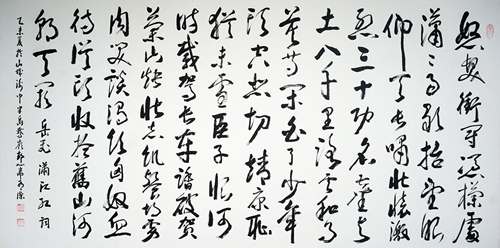 怒髮衝冠憑欄處
瀟瀟雨歇抬望眼
仰天長嘯壯懷激
烈三十功名塵與
土八千里路雲和月
莫等閒白了少年
頭空悲切靖康恥
猶未雪臣子恨何
時滅駕長車踏破賀
蘭山缺壯志飢餐胡虜
肉笑談渴飲匈奴血
待從頭收拾舊山河
朝天闕 岳飛 滿江紅 詞
乙未夏於山城